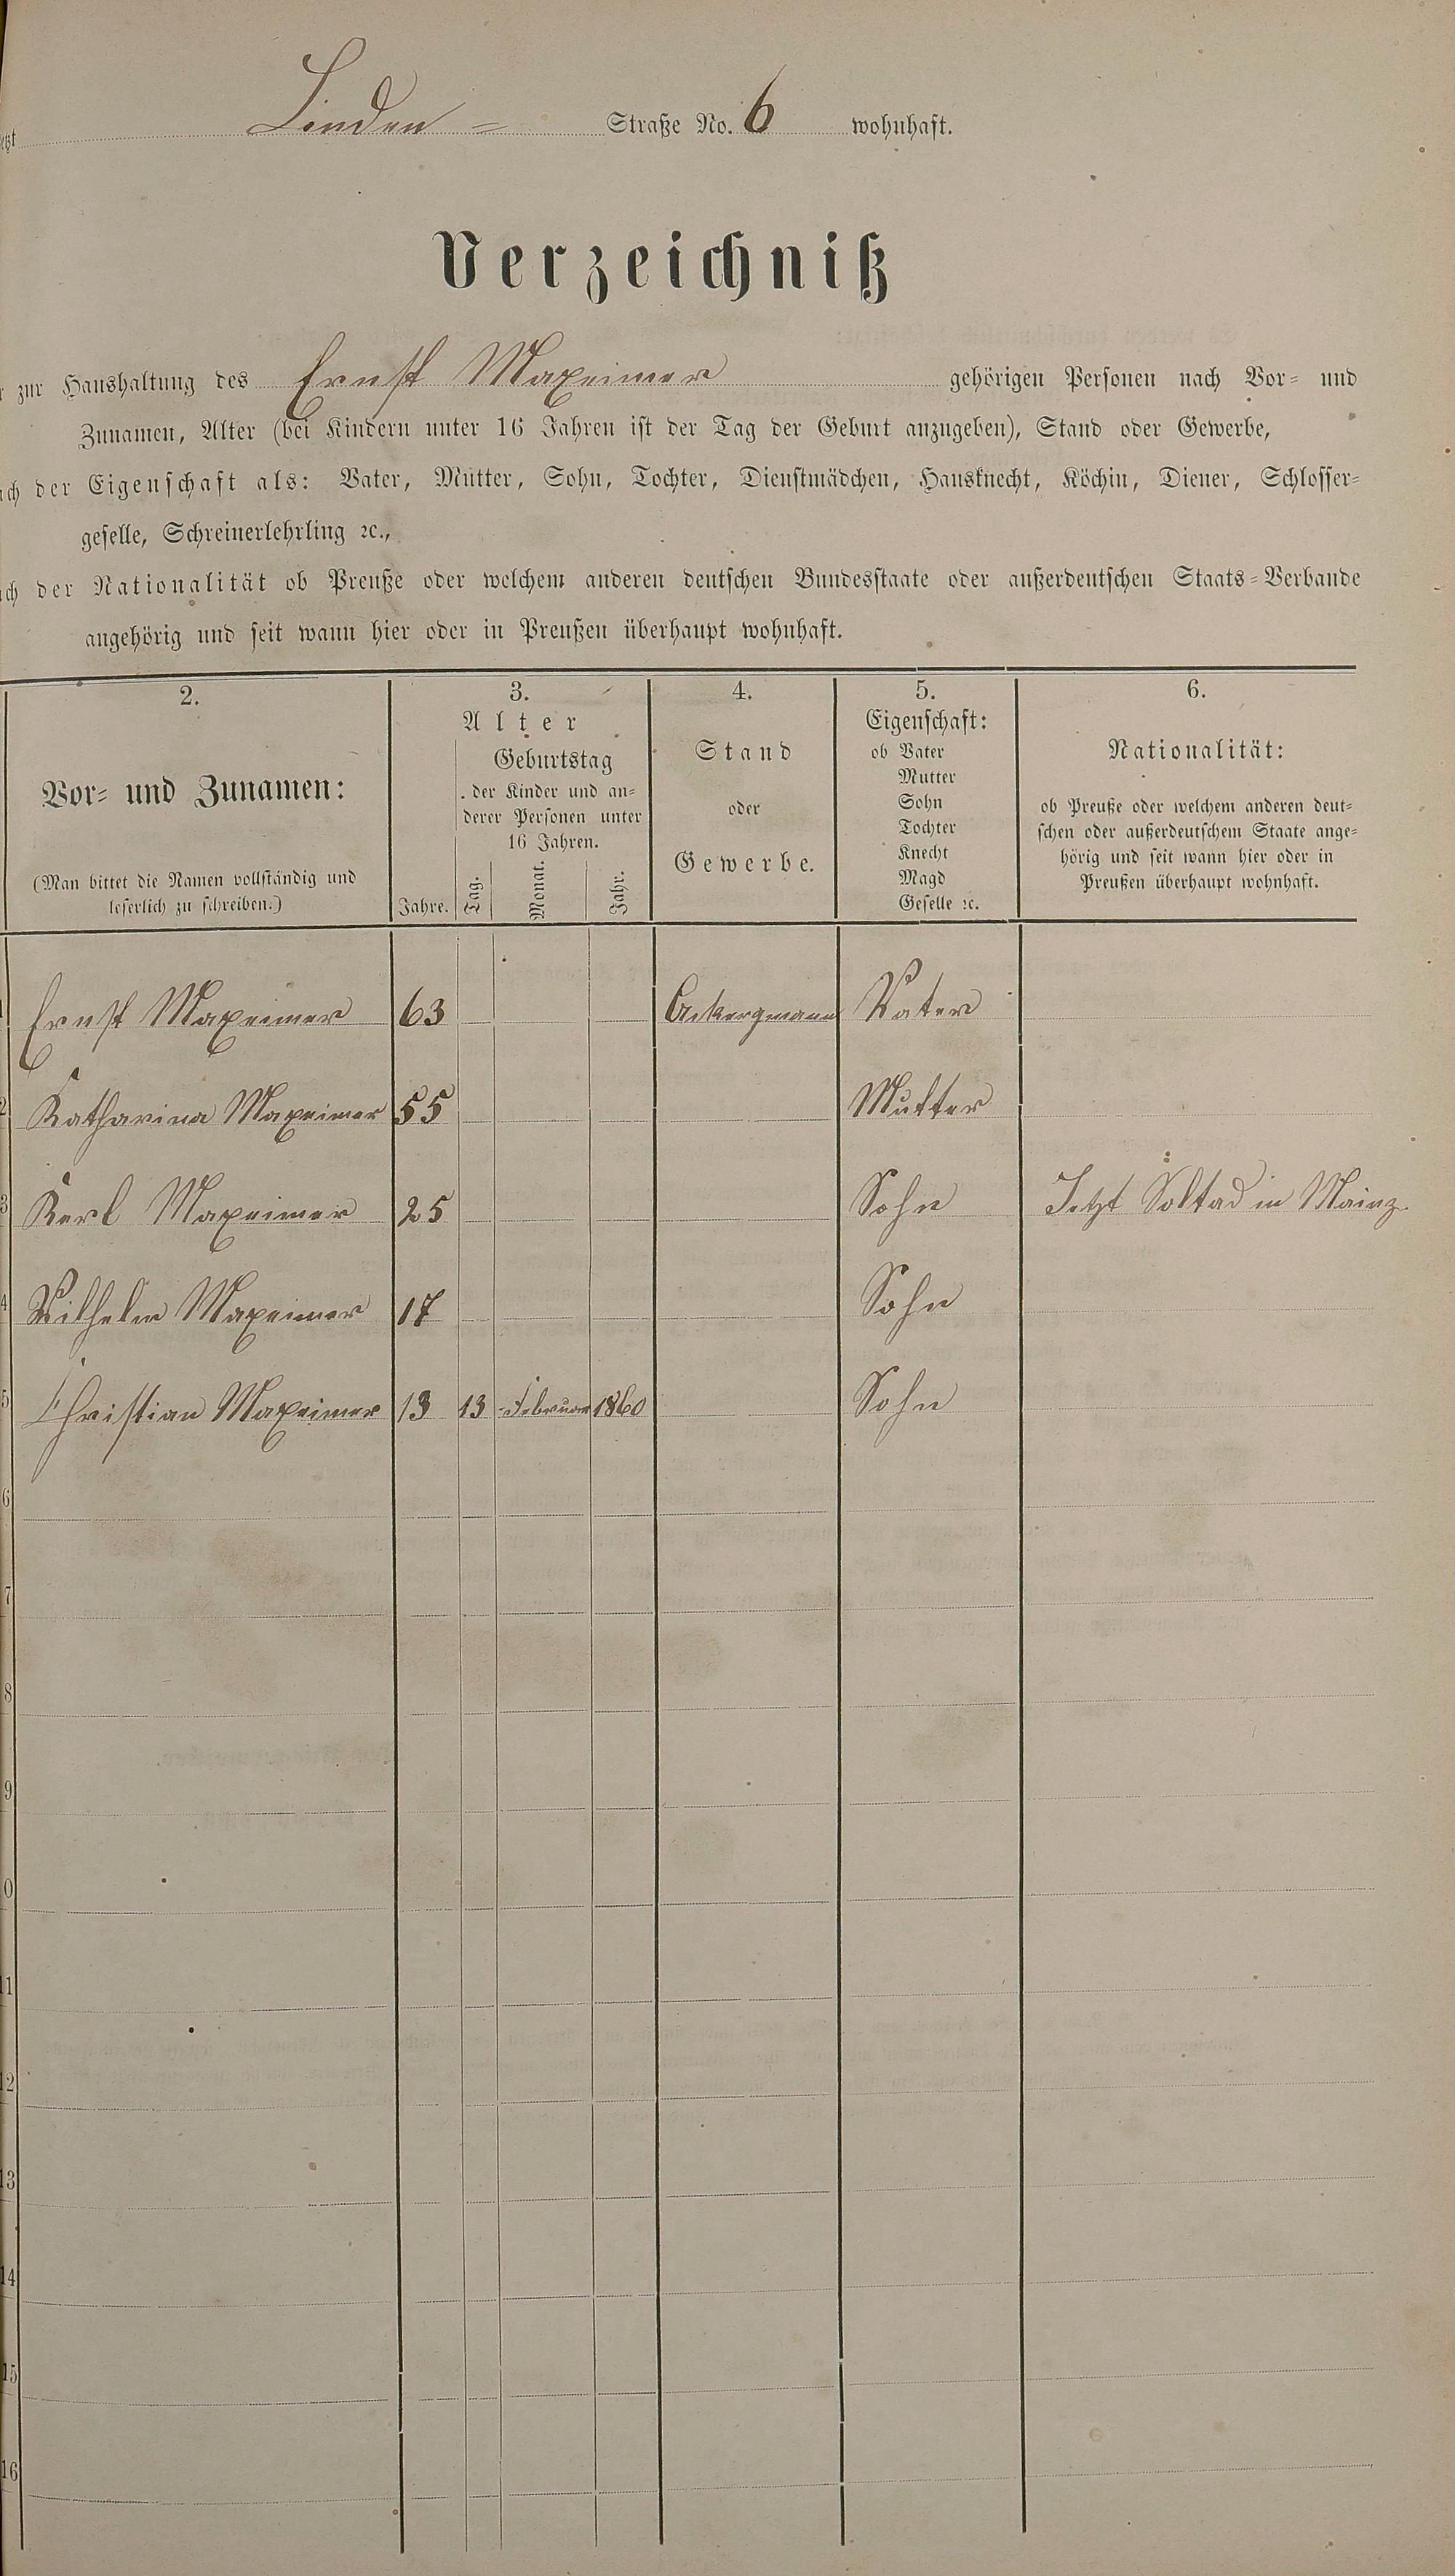 Linden = Straße No. 6 wohnhaft.
Verzeichniß
zur Haushaltung des Ernst Maxeimer gehörigen Personen nach Vor- und
Zunamen, Alter (bei Kindern unter 16 Jahren ist der Tag der Geburt anzugeben), Stand oder Gewerbe,
der Eigenschaft als: Vater, Mutter, Sohn, Tochter, Dienstmädchen, Hausknecht, Köchin, Diener, Schlosser-
geselle, Schreinerlehrling ꝛc.,
der Nationalität ob Preuße oder welchem anderen deutschen Bundesstaate oder außerdeutschen Staats-Verbande
angehörig und seit wann hier oder in Preußen überhaupt wohnhaft.
2. 3. 4. 5. 6.
Vor- und Zunamen:
(Man bittet die Namen vollständig und
leserlich zu schreiben.)
Alter
Jahre.
Geburtstag
der Kinder und an-
derer Personen unter
16 Jahren.
Tag. Monat. Jahr.
Stand
oder
Gewerbe.
Eigenschaft:
ob Vater
Mutter
Sohn
Tochter
Knecht
Magd
Geselle ꝛc.
Nationalität:
ob Preuße oder welchem anderen deut-
schen oder außerdeutschem Staate ange-
hörig und seit wann hier oder in
Preußen überhaupt wohnhaft.
Ernst Maxeimer 63 Ackergmann Vater
2 Katharina Maxeimer 55 Mutter
3 Karl Maxeimer 25 Sohn Jetzt Soltad in Mainz.
4 Wilhelm Maxeimer 17 Sohn
5 Christian Maxeimer 13 13 Februar 1860 Sohn
6
7
8
9
0
11
12
13
14
15
16